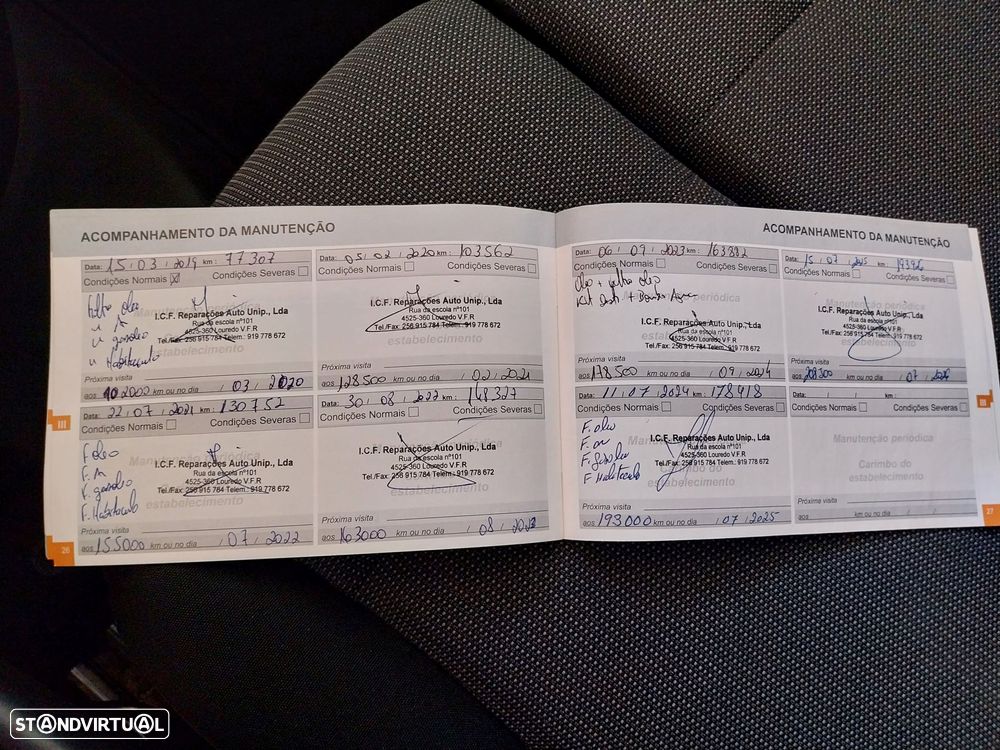 ACOMPANHAMENTO DA MANUTENÇÃO
Data: 15 / 03 / 2019 km: 77307
Condições Normais Condições Severas
filho oleo
u Ar
u gasoleo
u Habitaculo
I.C.F. Reparações Auto Unip., Lda
Rua da escola nº101
4525-360 Louredo V.F.R
Tel./Fax: 256 915 784 Telem.: 919 778 672
estabelecimento
Próxima visita
aos km ou no dia / 03 / 2020
Data: 05 / 02 / 2020 km: 103562
Condições Normais Condições Severas
I.C.F. Reparações Auto Unip., Lda
Rua da escola nº101
4525-360 Louredo V.F.R
Tel./Fax: 256 915 784 Telem.: 919 778 672
estabelecimento
Próxima visita
aos 128500 km ou no dia / 02 / 2021
Data: 22 / 07 / 2021 km: 130752
Condições Normais Condições Severas
F. oleo
F. Ar
F. gasoleo
F. Habitaculo
Manutenção periódica
I.C.F. Reparações Auto Unip., Lda
Rua da escola nº101
4525-360 Louredo V.F.R
Tel./Fax: 256 915 784 Telem.: 919 778 672
estabelecimento
Próxima visita
aos 155000 km ou no dia / 07 / 2022
Data: 30 / 08 / 2022 km: 148327
Condições Normais Condições Severas
I.C.F. Reparações Auto Unip., Lda
Rua da escola nº101
4525-360 Louredo V.F.R
Tel./Fax: 256 915 784 Telem.: 919 778 672
estabelecimento
Próxima visita
aos 163000 km ou no dia / 08 / 2023
III
26
ACOMPANHAMENTO DA MANUTENÇÃO
Data: 06 / 09 / 2023 km: 163882
Condições Normais Condições Severas
oleo + filho oleo
Kit Dist + Bomba Agua
I.C.F. Reparações Auto Unip., Lda
Rua da escola nº101
4525-360 Louredo V.F.R
Tel./Fax: 256 915 784 Telem.: 919 778 672
estabelecimento
Próxima visita
aos 178500 km ou no dia / 09 / 2024
Data: 15 / 07 / 2025 km:
Condições Normais Condições Severas
I.C.F. Reparações Auto Unip., Lda
Rua da escola nº101
4525-360 Louredo V.F.R
Tel./Fax: 256 915 784 Telem.: 919 778 672
estabelecimento
Próxima visita
aos 208300 km ou no dia / 07 / 2026
Data: 11 / 07 / 2024 km: 178918
Condições Normais Condições Severas
F. oleo
F. ar
F. gasoleo
F Habitaculo
I.C.F. Reparações Auto Unip., Lda
Rua da escola nº101
4525-360 Louredo V.F.R
Tel./Fax: 256 915 784 Telem.: 919 778 672
estabelecimento
Próxima visita
aos 193000 km ou no dia / 07 / 2025
Data: / / km:
Condições Normais Condições Severas
Manutenção periódica
Carimbo do
estabelecimento
Próxima visita
aos km ou no dia / /
III
27
STANDVIRTUAL